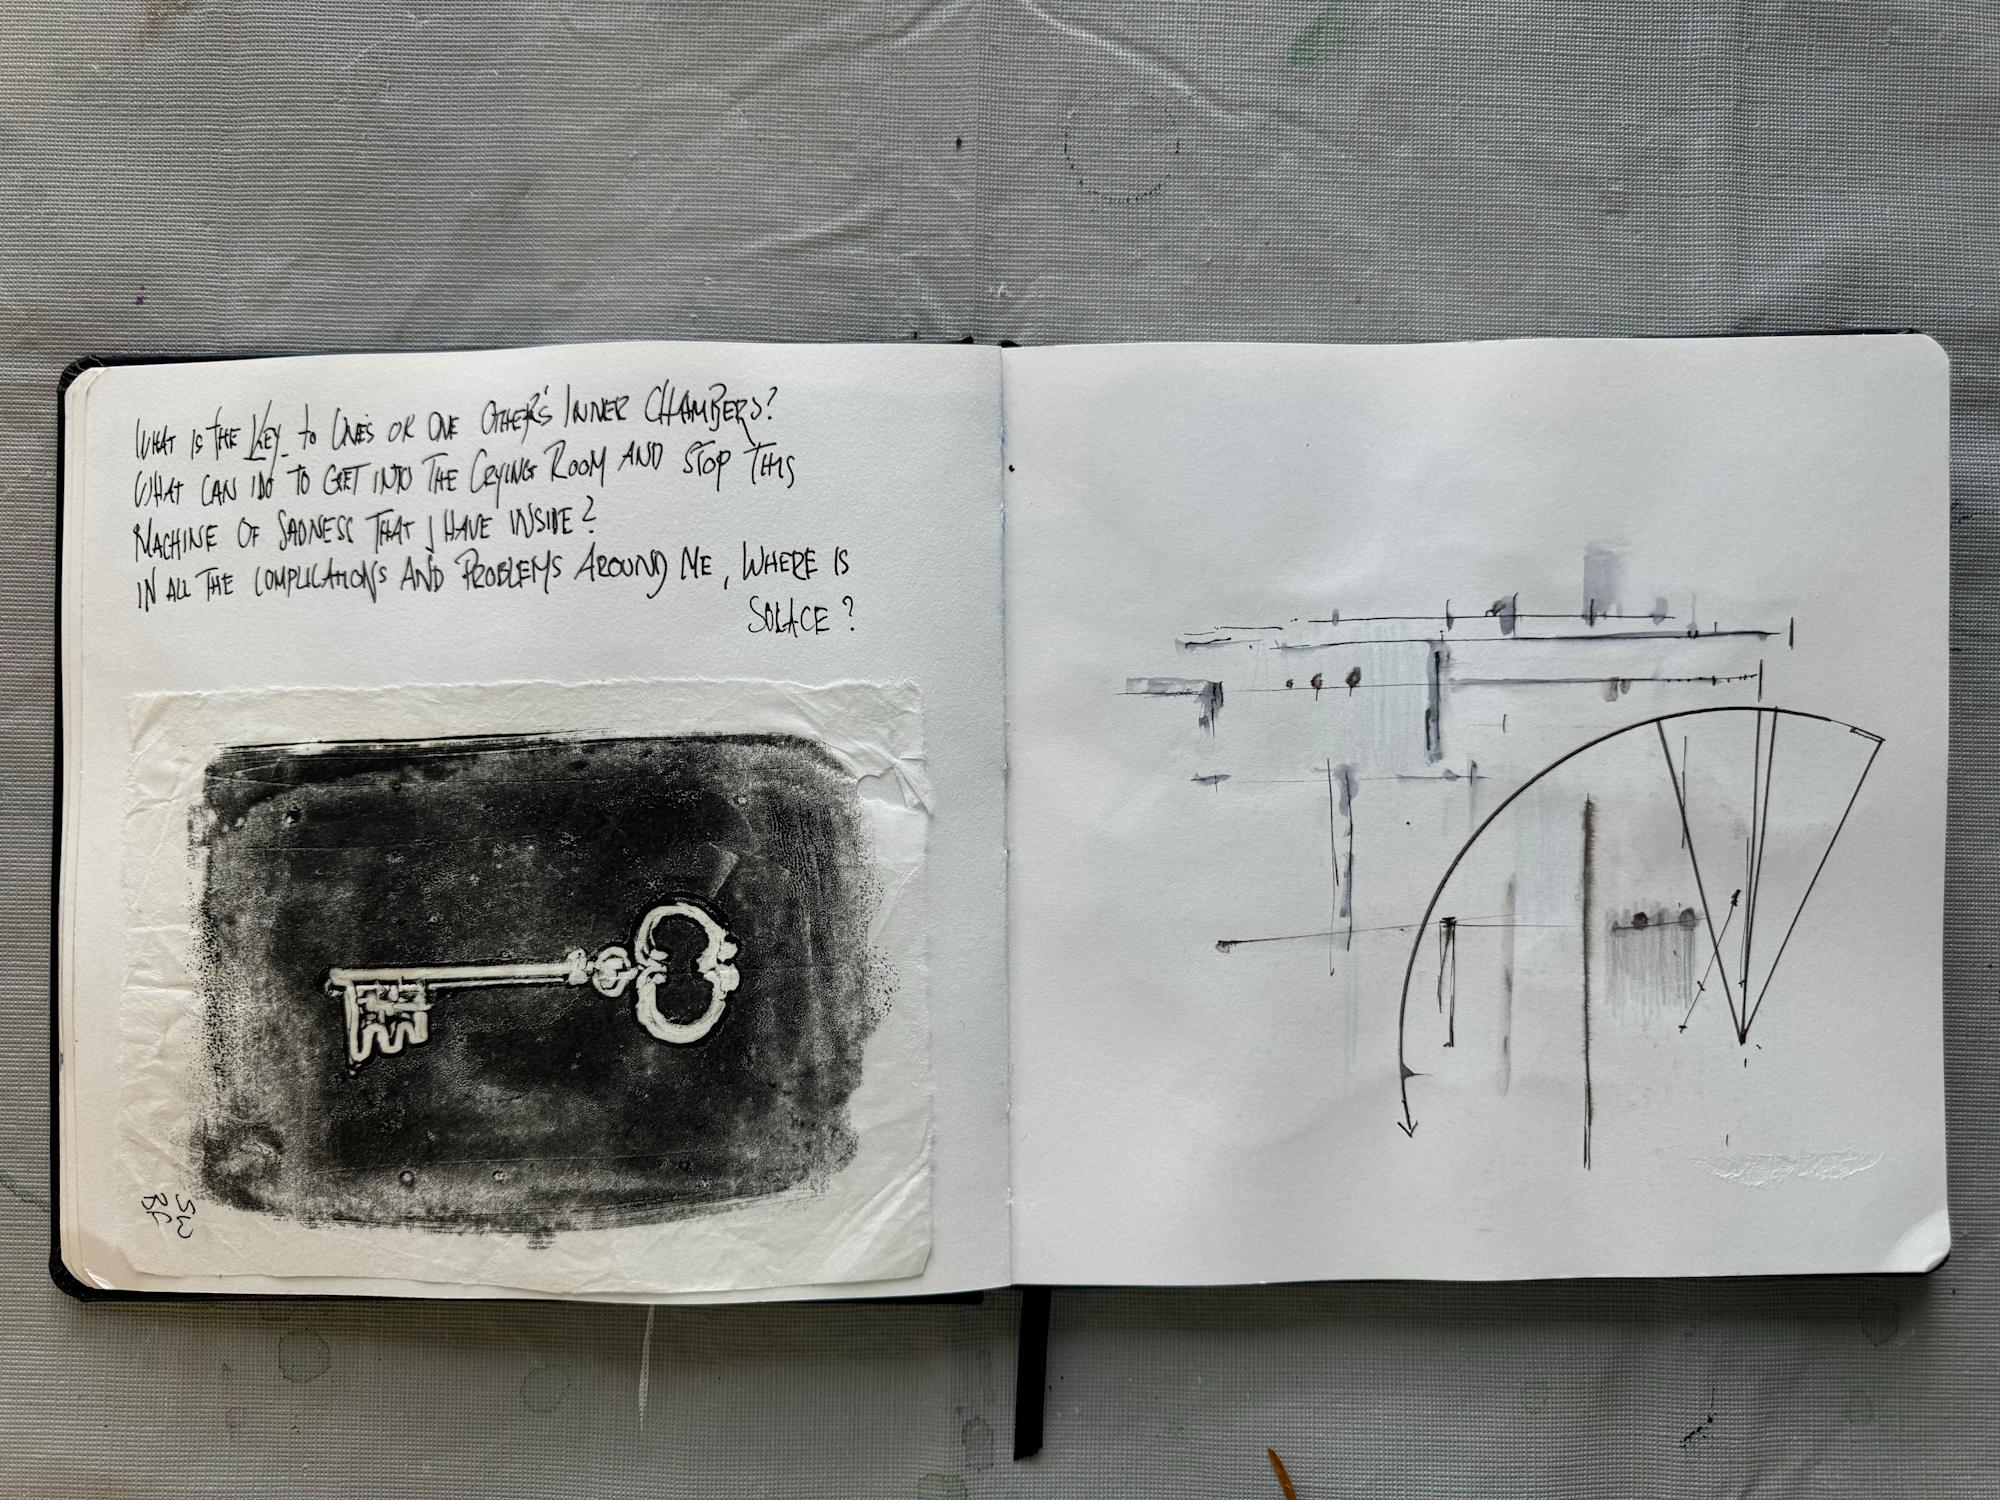 WHAT IS THE KEY TO ONE'S OR ONE OTHER'S INNER CHAMBERS?
WHAT CAN I DO TO GET INTO THE CRYING ROOM AND STOP THIS
MACHINE OF SADNESS THAT I HAVE INSIDE?
IN ALL THE COMPLICATIONS AND PROBLEMS AROUND ME, WHERE IS
SOLACE?
SW